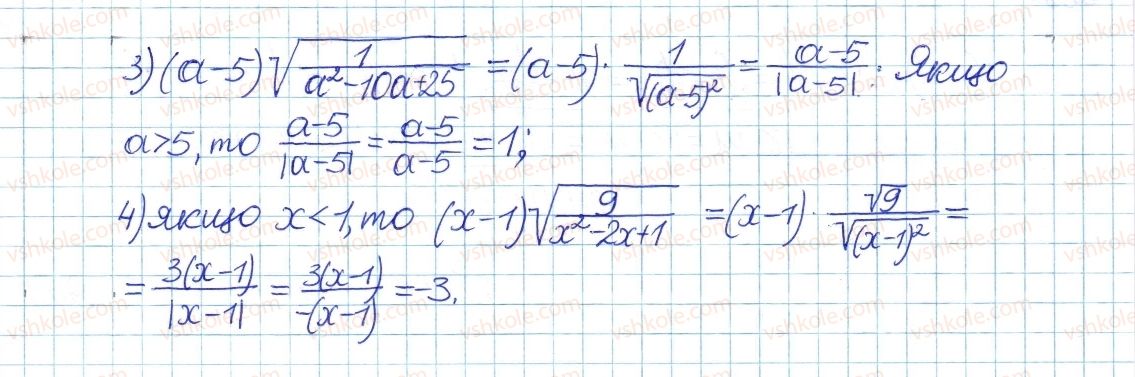 3) (a-5)√(1/(a²-10a+25)) = (a-5)·1/√((a-5)²) = (a-5)/|a-5|. Якщо
a>5, то (a-5)/|a-5| = (a-5)/(a-5) = 1;
4) якщо x<1, то (x-1)√(9/(x²-2x+1)) = (x-1)·√9/√((x-1)²) =
= 3(x-1)/|x-1| = 3(x-1)/-(x-1) = -3.